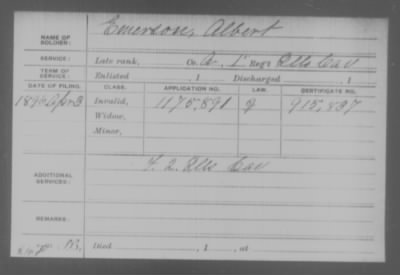 NAME OF SOLDIER: Emerson, Albert
SERVICE: Late rank, Co. A, 1" Reg't Ills Cav
TERM OF SERVICE: Enlisted , 1 Discharged , 1
DATE OF FILING. CLASS. APPLICATION NO. LAW. CERTIFICATE NO.
Apr 3 Invalid, 1175,891 G 915,837
Widow,
Minor,
ADDITIONAL SERVICES: F. 2. Ills Cav
REMARKS:
Died , 1 , at